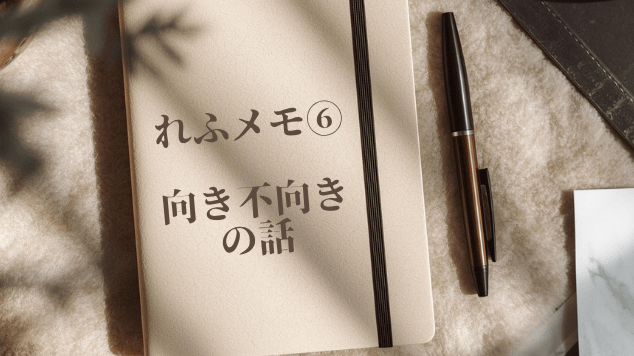 れふメモ⑥
向き不向き
の話